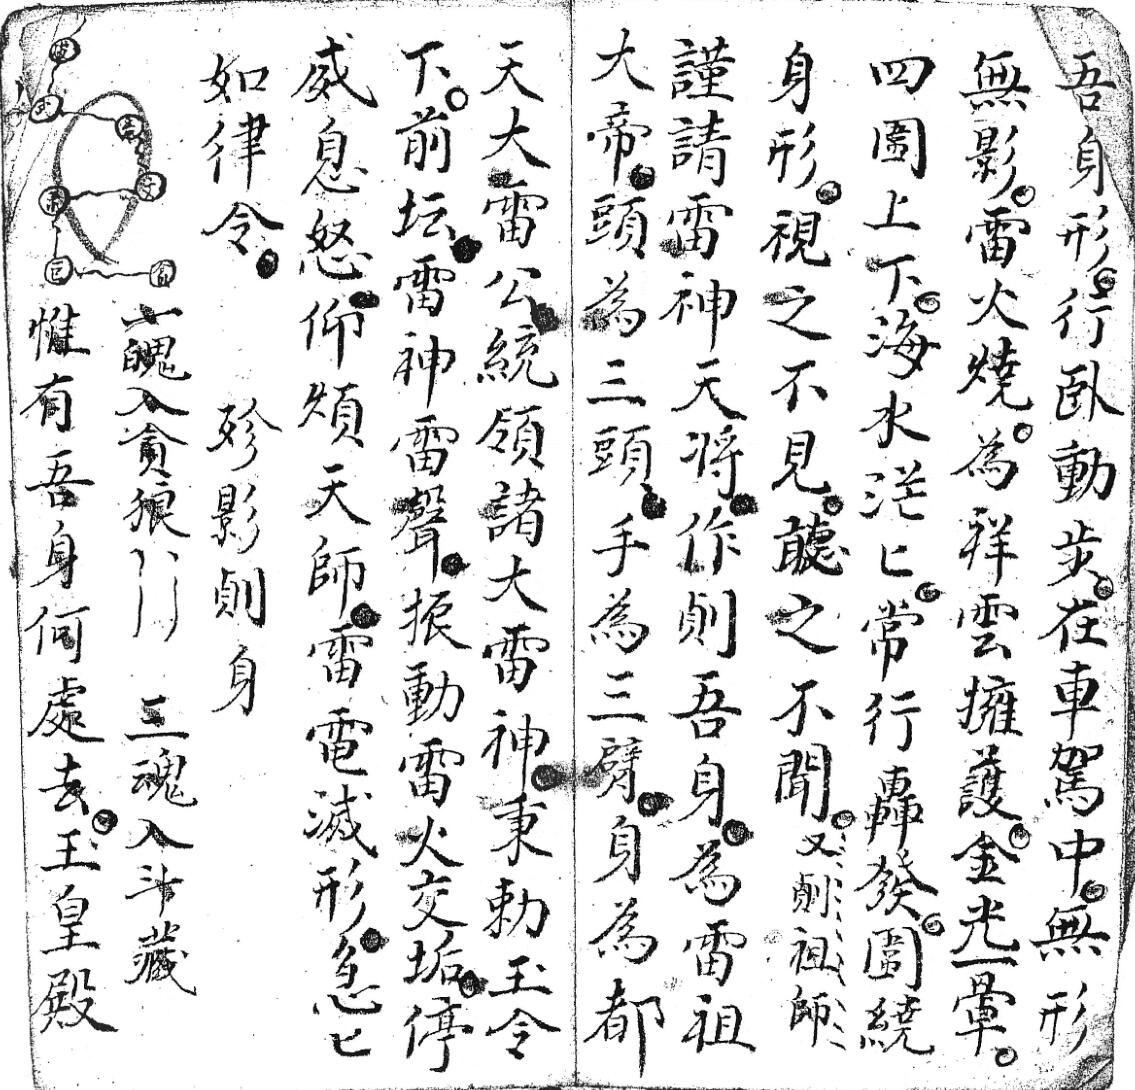 吾身形行卧動步在車駕中無形
無影雷火燒為祥雲擁護金光一暈
四圍上下海水茫匕常行轟發圍繞
身形視之不見聽之不聞又劊祖師
謹請雷神天将作劊吾身為雷祖
大帝頭為三頭手為三臂身為都
天大雷公統領諸大雷神秉勅玉令
下前坛雷神雷聲振動雷火交垢停
威息怒仰煩天師雷電滅形急匕
如律令 影劊身
七魄入貪狼 三魂入斗藏
惟有吾身何處去玉皇殿